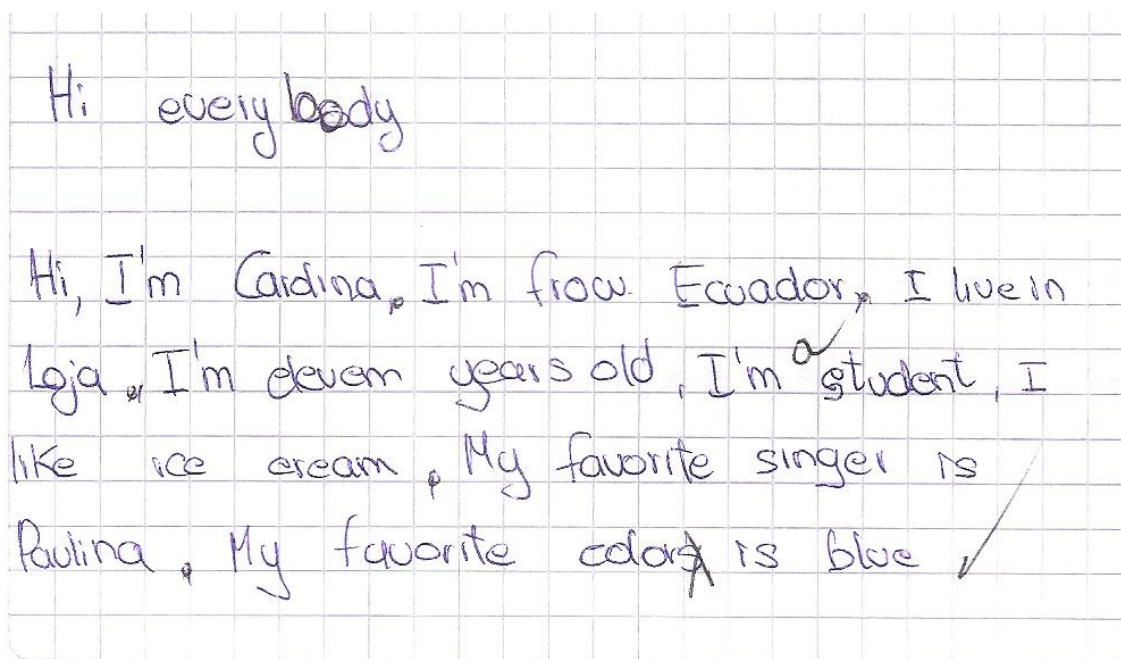 Hi everybody
Hi, I'm Carolina, I'm from Ecuador, I live in
Loja, I'm elevem years old, I'm a student, I
like ice cream, My favorite singer is
Paulina, My favorite color is blue